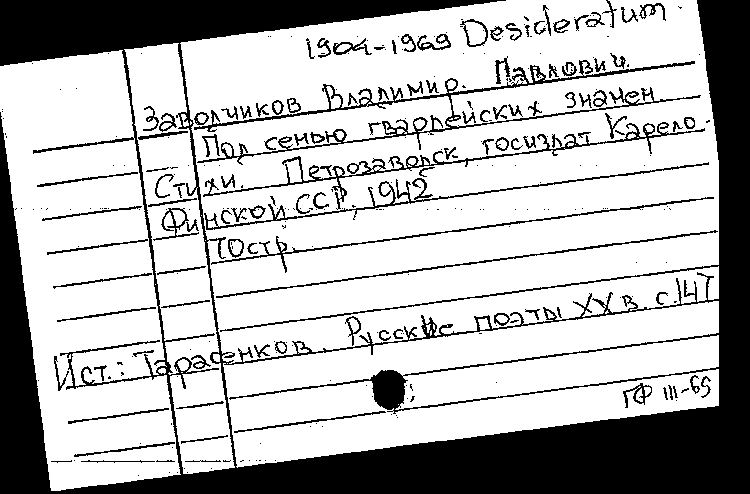 1904-1969 Desideratum
Заволчиков Владимир. Павлович
Под сенью гвардейских знамен
Стихи. Петрозаводск, госиздат Карело-
Финской ССР, 1942
70стр.
Ист.: Тарасенков. Русские поэты XX в. с.147
ГФ III-69